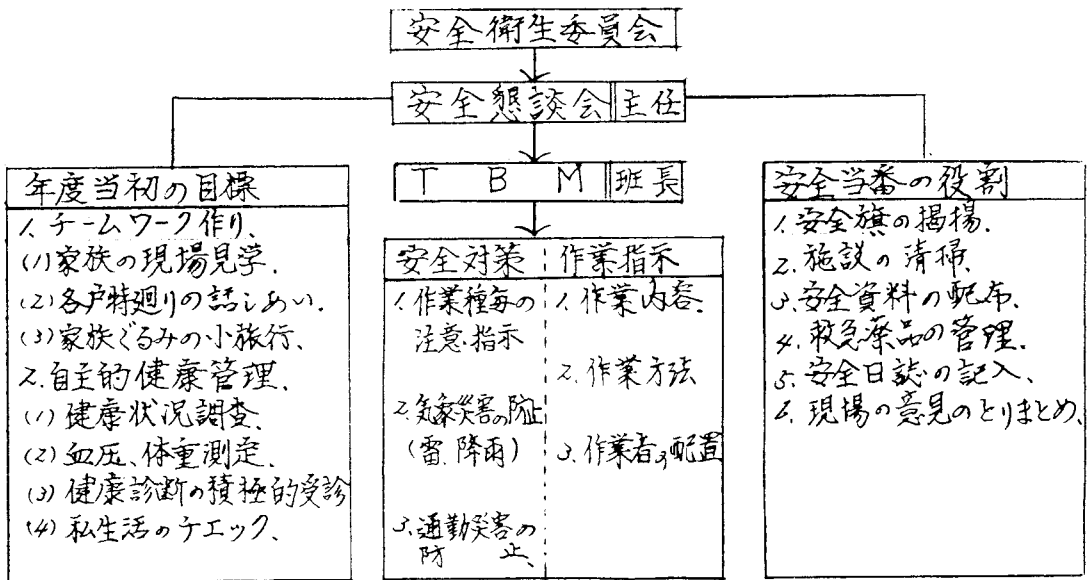 安全衛生委員会
安全懇談会 主任
T B M 班長
年度当初の目標
1. チームワーク作り、
(1) 家族の現場見学、
(2) 各戸持廻りの話しあい、
(3) 家族ぐるみの小旅行、
2. 自主的健康管理、
(1) 健康状況調査、
(2) 血圧、体重測定、
(3) 健康診断の積極的受診
(4) 私生活のチエック、
安全対策 作業指示
1. 作業種毎の
注意、指示
2. 気象災害の防止
(雷、降雨)
3. 通勤災害の
防 止、
1. 作業内容、
2. 作業方法
3. 作業者の配置
安全当番の役割
1. 安全旗の掲揚、
2. 施設の清掃、
3. 安全資料の配布、
4. 救急薬品の管理、
5. 安全日誌の記入、
6. 現場の意見のとりまとめ、